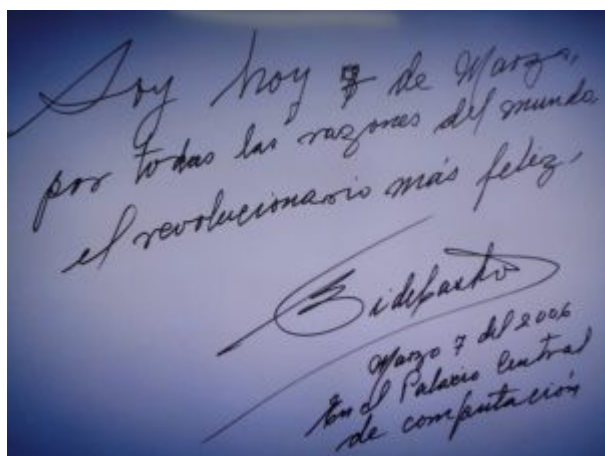 Soy hoy 7 de Marzo,
por todas las razones del mundo
el revolucionario más feliz.
Fidel Castro
Marzo 7 del 2006
En el Palacio Central
de computación